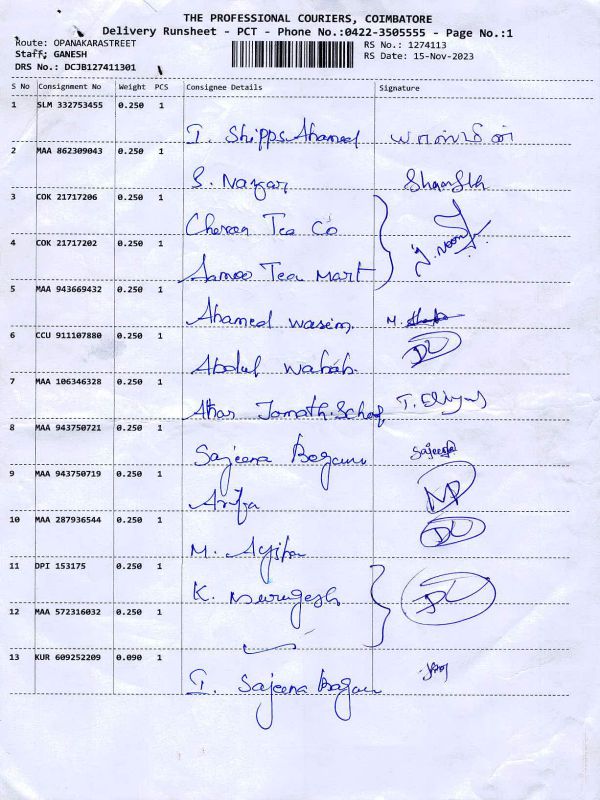 THE PROFESSIONAL COURIERS, COIMBATORE
Delivery Runsheet - PCT - Phone No.:0422-3505555 - Page No.:1
Route: OPANAKARASTREET RS No.: 1274113
Staff: GANESH RS Date: 15-Nov-2023
DRS No.: DCJB127411301
S No Consignment No Weight PCS Consignee Details Signature
1 SLM 332753455 0.250 1
I. Shipps Ahamed
2 MAA 862309043 0.250 1
S. Nazgar
3 COK 21717206 0.250 1
Tea Co
4 COK 21717202 0.250 1
Tea Mart
5 MAA 943669432 0.250 1
Ahamed wasim M.
6 CCU 911107880 0.250 1
Abdul wahab DU
7 MAA 106346328 0.250 1
Jamath
8 MAA 943750721 0.250 1
Sajeena Begam Sajeena
9 MAA 943750719 0.250 1
Arifa
10 MAA 287936544 0.250 1
M. DU
11 DPI 153175 0.250 1
K. Murugesh
12 MAA 572316032 0.250 1
13 KUR 609252209 0.090 1
I. Sajeena Begam